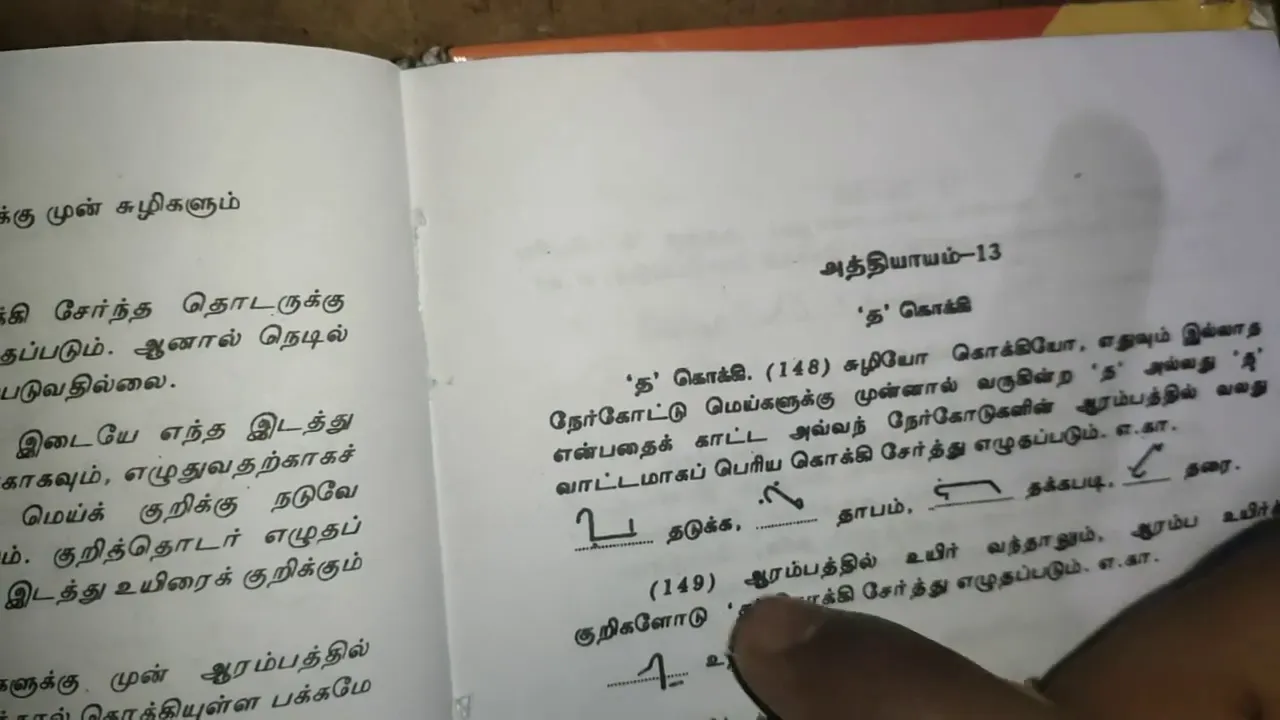 க்கு முன் சுழிகளும்
க்கி சேர்ந்த தொடருக்கு
தப்படும். ஆனால் நெடில்
படுவதில்லை.
இடையே எந்த இடத்து
காகவும், எழுதுவதற்காகச்
மெய்க் குறிக்கு நடுவே
ம். குறித்தொடர் எழுதப்
இடத்து உயிரைக் குறிக்கும்
களுக்கு முன் ஆரம்பத்தில்
கொக்கியுள்ள பக்கமே
அத்தியாயம்-13
'த' கொக்கி
'த' கொக்கி. (148) சுழியோ கொக்கியோ, எதுவும் இல்லாத
நேர்கோட்டு மெய்களுக்கு முன்னால் வருகின்ற 'த' அல்லது
என்பதைக் காட்ட அவ்வந் நேர்கோடுகளின் ஆரம்பத்தில் வலது
வாட்டமாகப் பெரிய கொக்கி சேர்த்து எழுதப்படும். எ.கா.
தடுக்க, தாபம், தக்கபடி, தரை.
(149) ஆரம்பத்தில் உயிர் வந்தாலும், ஆரம்ப
குறிகளோடு சேர்த்து எழுதப்படும். எ.கா.